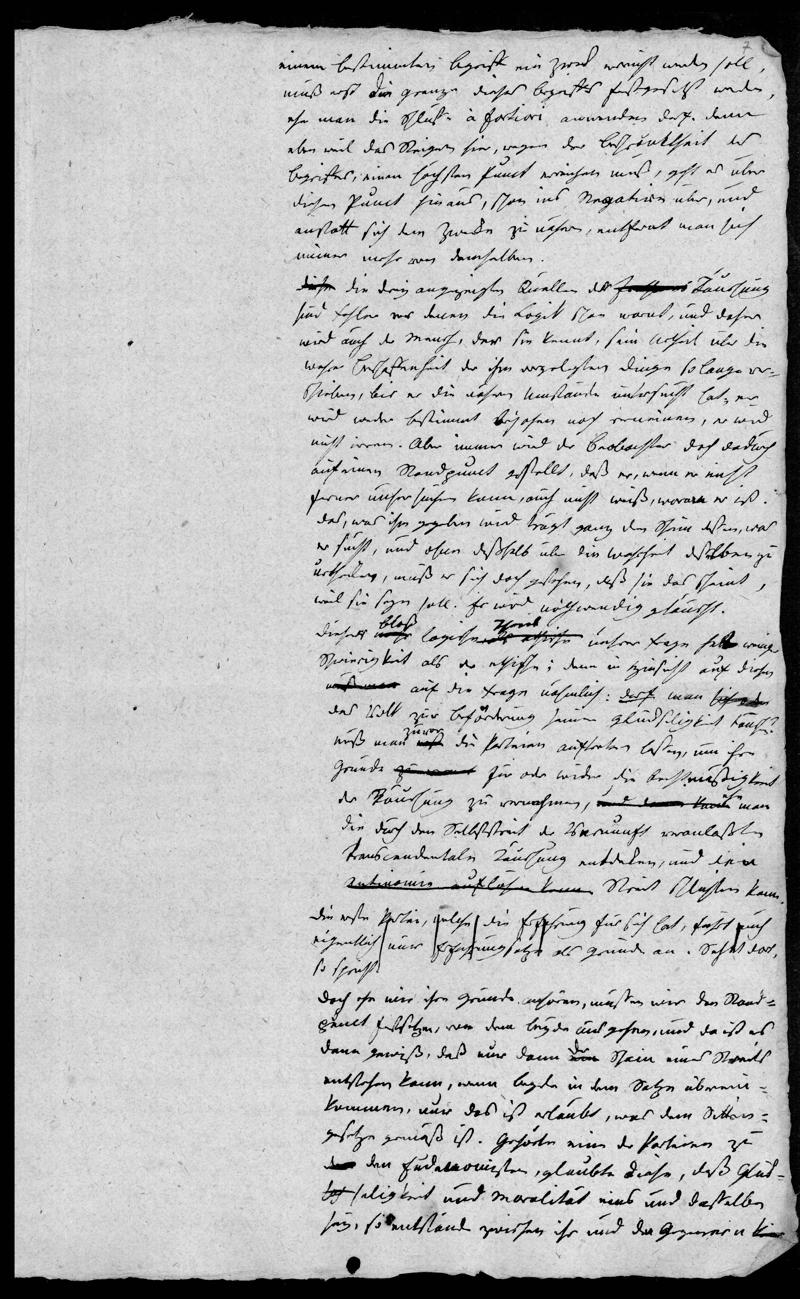 7
einem bestimmten begriff ein Zweck erreicht werden soll,
muß erst die grenze dieses begriffes festgesetzt werden,
ehe man die Schlüße à fortiori anwenden darf. denn
eben weil das Steigern hier, wegen der beschränktheit des
begriffes, einen höchsten Punct erreichen muß, geht es über
diesen Punct hinaus, schon ins Negative über, und
anstatt sich dem Zwecke zu nähern, entfernt man sich
immer mehr von demselben.
diese die drei angezeigten Quellen der Täuschung
sind fehler vor denen die Logik schon warnt, und daher
wird auch der Mensch, der sie kennt, sein Urtheil über die
wahre beschaffenheit der ihm vorgelegten dinge so lange ver-
schieben, bis er die nähern Umstände untersucht hat, er
wird weder bestimmt bejahen noch verneinen, er wird
nicht irren. Aber immer wird der Beobachter doch dadurch
auf einen Standpunct gestellt, daß er, wenn er nicht
ferner untersuchen kann, auch nicht weiß, woran er ist.
das, was ihm gegeben wird trägt ganz den Schein dessen, was
er sucht, und ohne deßhalb über die wahrheit desselben zu
urtheilen, muß er sich doch gestehen, daß sie das scheint,
was sie seyn soll. Er wird nothwendig getäuscht.
bloß Theil
dieser logische unsrer frage hat weniger
Schwierigkeit als der ethische; denn in Hinsicht auf diesen
muß man auf die frage nähmlich: darf man
das Volk zur beförderung seiner glückseligkeit täuschen?
zuvor
muß man erst die Parteien auftreten laßen, um ihre
Gründe für oder wider die Rechtmäßigkeit
der Täuschung zu vernehmen, und dann kann man
die durch den Selbststreit der Vernunft veranlaßten
transcendentalen Täuschung entdeken, und den
antinomie auflösen kann Streit schlichten kann.
die erste Partei, welche die Erfahrung für sich hat, führt auch
eigentlich nur Erfahrungssätze als gründe an. Sehet dar,
so spricht
doch ehe wir ihre Gründe anhören, müssen wir den Stand-
punct festsetzen, von dem beyde ausgehen, und da ist es
denn gewiß, daß nur dann der Schein eines Streits
entstehen kann, wenn beyde in dem Satze überein-
kommen, nur das ist erlaubt, was dem Sitten-
gesetze gemäß ist. Gehörte eine der Parteien zu
den Eudämonisten, glaubte diese, daß Glück-
seligkeit und Moralität eins und dasselbe
sey, so entstände zwischen ihr und der Gegnerin